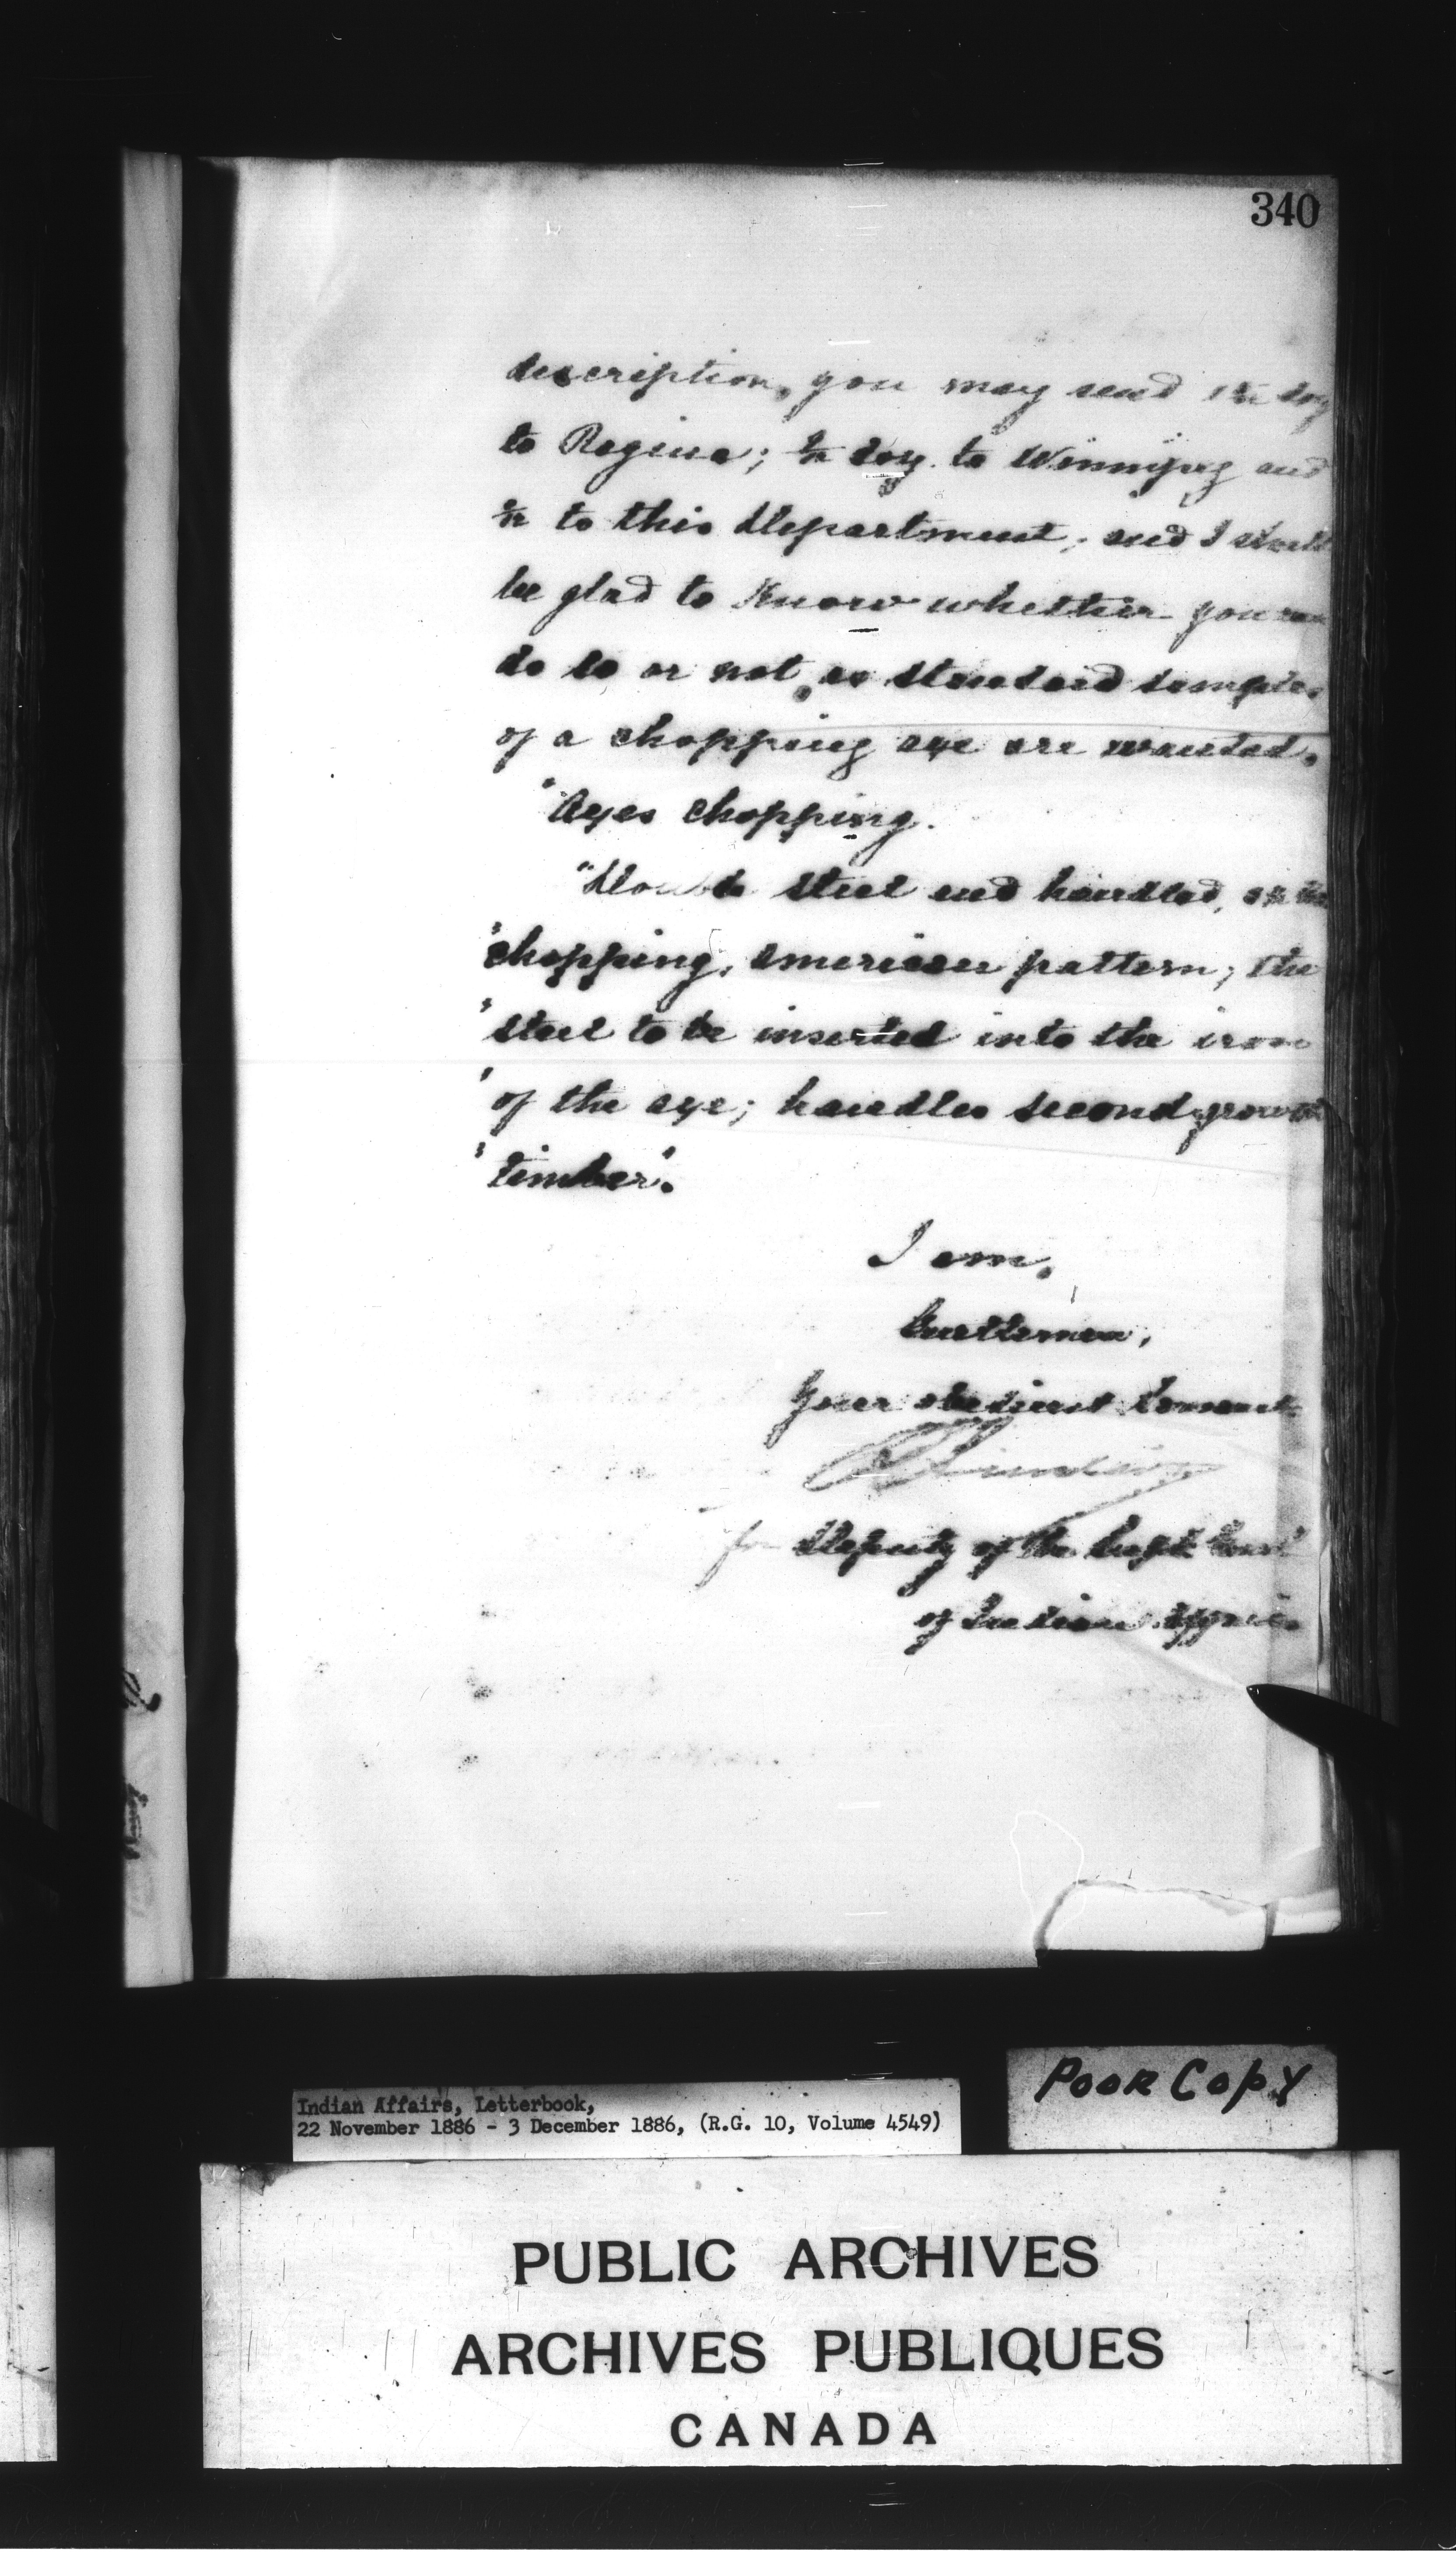 340
description, you may send 1½ doz
to Regina; ½ doz. to Winnipeg and
½ to this Department; and I shall
be glad to know whether you can
do so or not, as standard samples
of a chopping axe are wanted.
"Axes chopping.
"Double steel and handled,
"chopping, American pattern; the
"steel to be inserted into the iron
"of the axe; handles second growth
"timber".
I am,
Gentlemen,
Your obedient Servant
for Deputy of the Supt. Genl
of Indian Affairs
Poor Copy
Indian Affairs, Letterbook,
22 November 1886 - 3 December 1886, (R.G. 10, Volume 4549)
PUBLIC ARCHIVES
ARCHIVES PUBLIQUES
CANADA